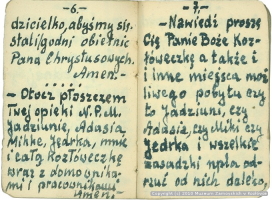 -6.-
dzicielko, abyśmy się
stali godni obietnic
Pana Chrystusowych.
Amen.
- Otocz płaszczem
Twej opieki N.P.M.
Jadziunię, Adasia,
Mikkę, Jędrka, mnie
i całą Kozłóweczkę
wraz z domownika-
mi i pracownikami
Amen.
-7-
- Nawiedź proszę
Cię Panie Boże Koz-
łóweczkę a także i
i inne miejsca moż-
liwego pobytu czy
to Jadziuni, czy
Adasia, czy Miki czy
Jędrka i wszelkie
zasadzki npla od-
rzuć od nich daleko,